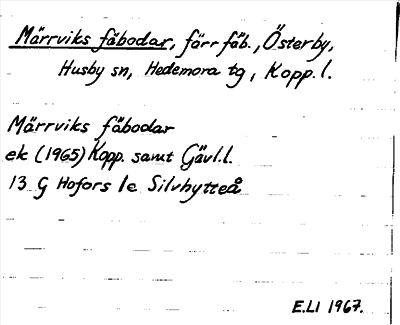 Märrviks fäbodar, färr fäb., Österby,
Husby sn, Hedemora tg, Kopp. l.
Märrviks fäbodar
ek (1965) Kopp. samt Gävl.l.
13 G Hofors 1e Silvhytteå
E.LI 1967.